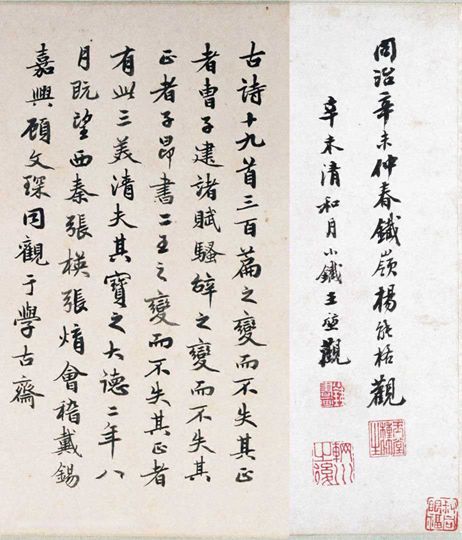 同治辛未仲春鐵嶺楊能格觀
辛未清和月小鐵王觀
古詩十九首三百篇之變而不失其正
者曹子建諸賦騷辭之變而不失其
正者子昂書二王之變而不失其正者
有此三美清夫其寶之大德二年八
月既望西秦張楧張焴會稽戴錫
嘉興顧文琛同觀于學古齋